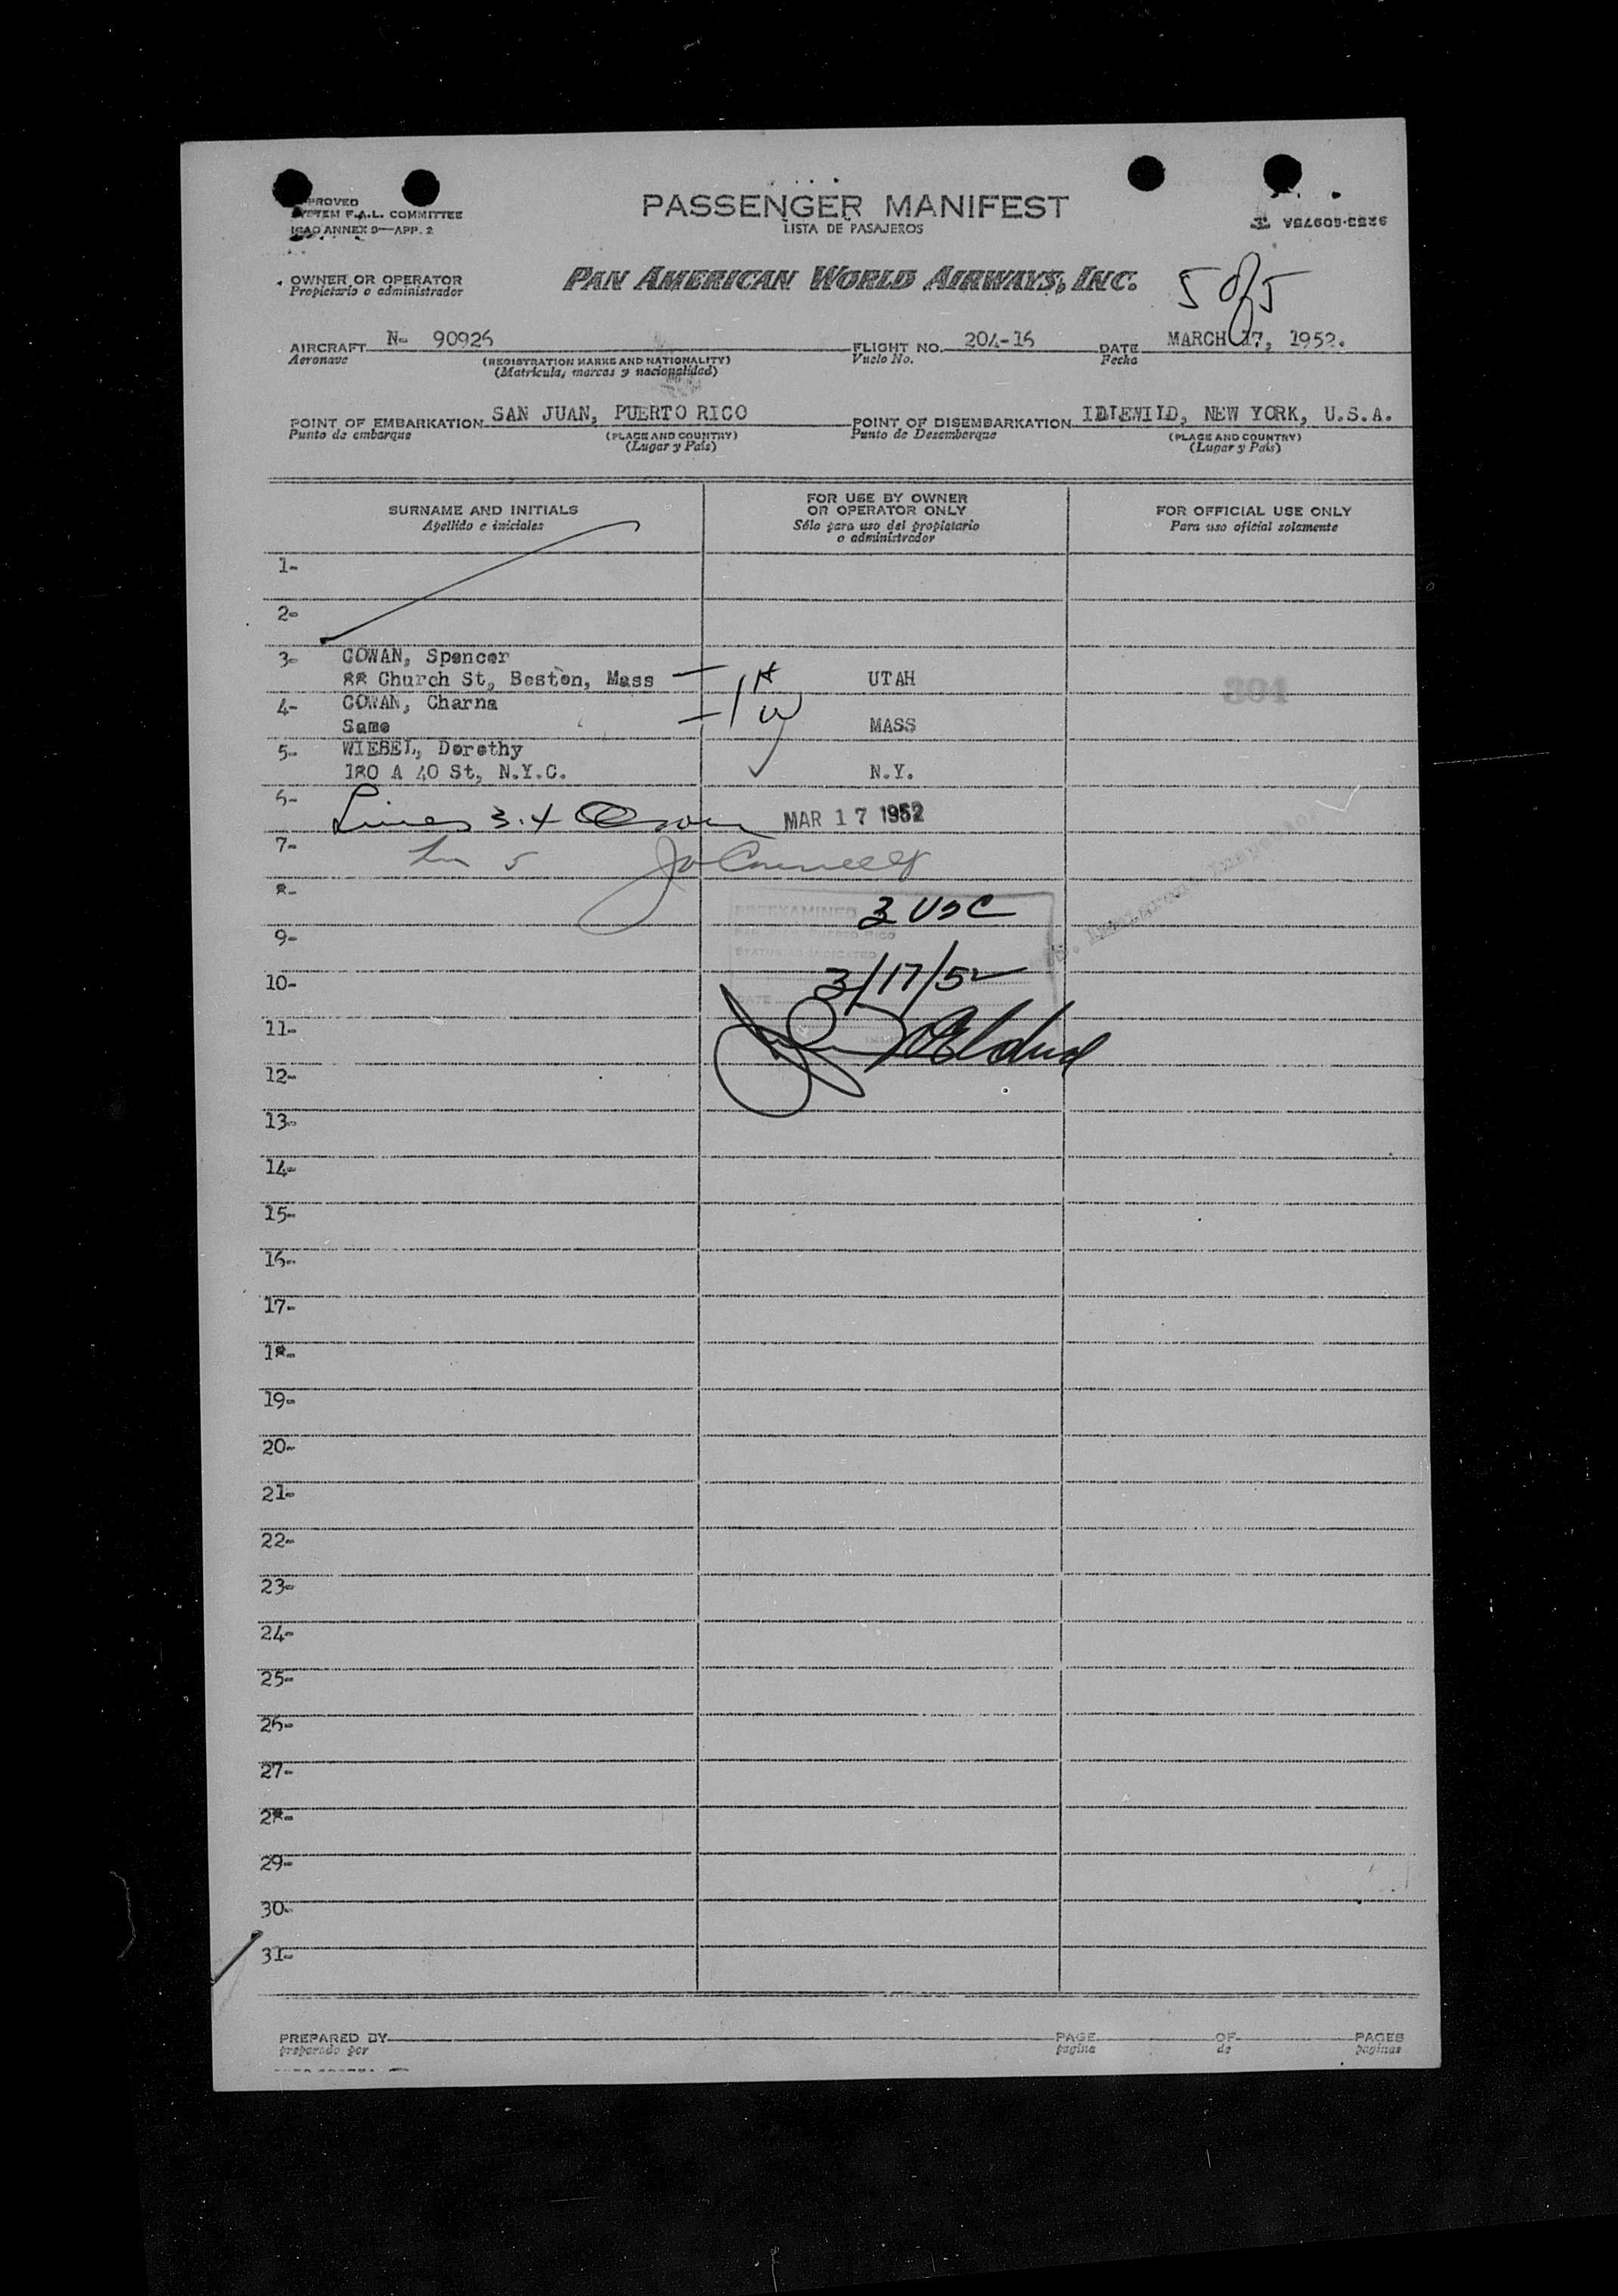 PROVED
SYSTEM F.A.L. COMMITTEE
ICAO ANNEX 9—APP. 2
PASSENGER MANIFEST
LISTA DE PASAJEROS
OWNER OR OPERATOR
Propietario o administrador
PAN AMERICAN WORLD AIRWAYS, INC.
5 of 5
AIRCRAFT N- 90926
Aeronave
(REGISTRATION MARKS AND NATIONALITY)
(Matricula, marcas y nacionalidad)
FLIGHT NO. 204-16
Vuelo No.
DATE MARCH 17, 1952.
Fecha
POINT OF EMBARKATION SAN JUAN, PUERTO RICO
Punto de embarque
(PLACE AND COUNTRY)
(Lugar y País)
POINT OF DISEMBARKATION IDLEWILD, NEW YORK, U.S.A.
Punto de Desembarque
(PLACE AND COUNTRY)
(Lugar y País)
SURNAME AND INITIALS
Apellido e iniciales
FOR USE BY OWNER
OR OPERATOR ONLY
Sólo para uso del propietario
o administrador
FOR OFFICIAL USE ONLY
Para uso oficial solamente
1-
2-
3- COWAN, Spencer
88 Church St, Boston, Mass UTAH
304
4- COWAN, Charna
Same MASS
5- WIEBEL, Dorothy
180 A 40 St, N.Y.C. N.Y.
6-
Lines 3.4
MAR 17 1952
7-
Ln 5
8-
PREEXAMINED
3 USC
9-
STATUS AS INDICATED
10-
DATE
3/17/52
11-
12-
13-
14-
15-
16-
17-
18-
19-
20-
21-
22-
23-
24-
25-
26-
27-
28-
29-
30-
31-
PREPARED BY
preparado por
PAGE OF PAGES
pagina de paginas